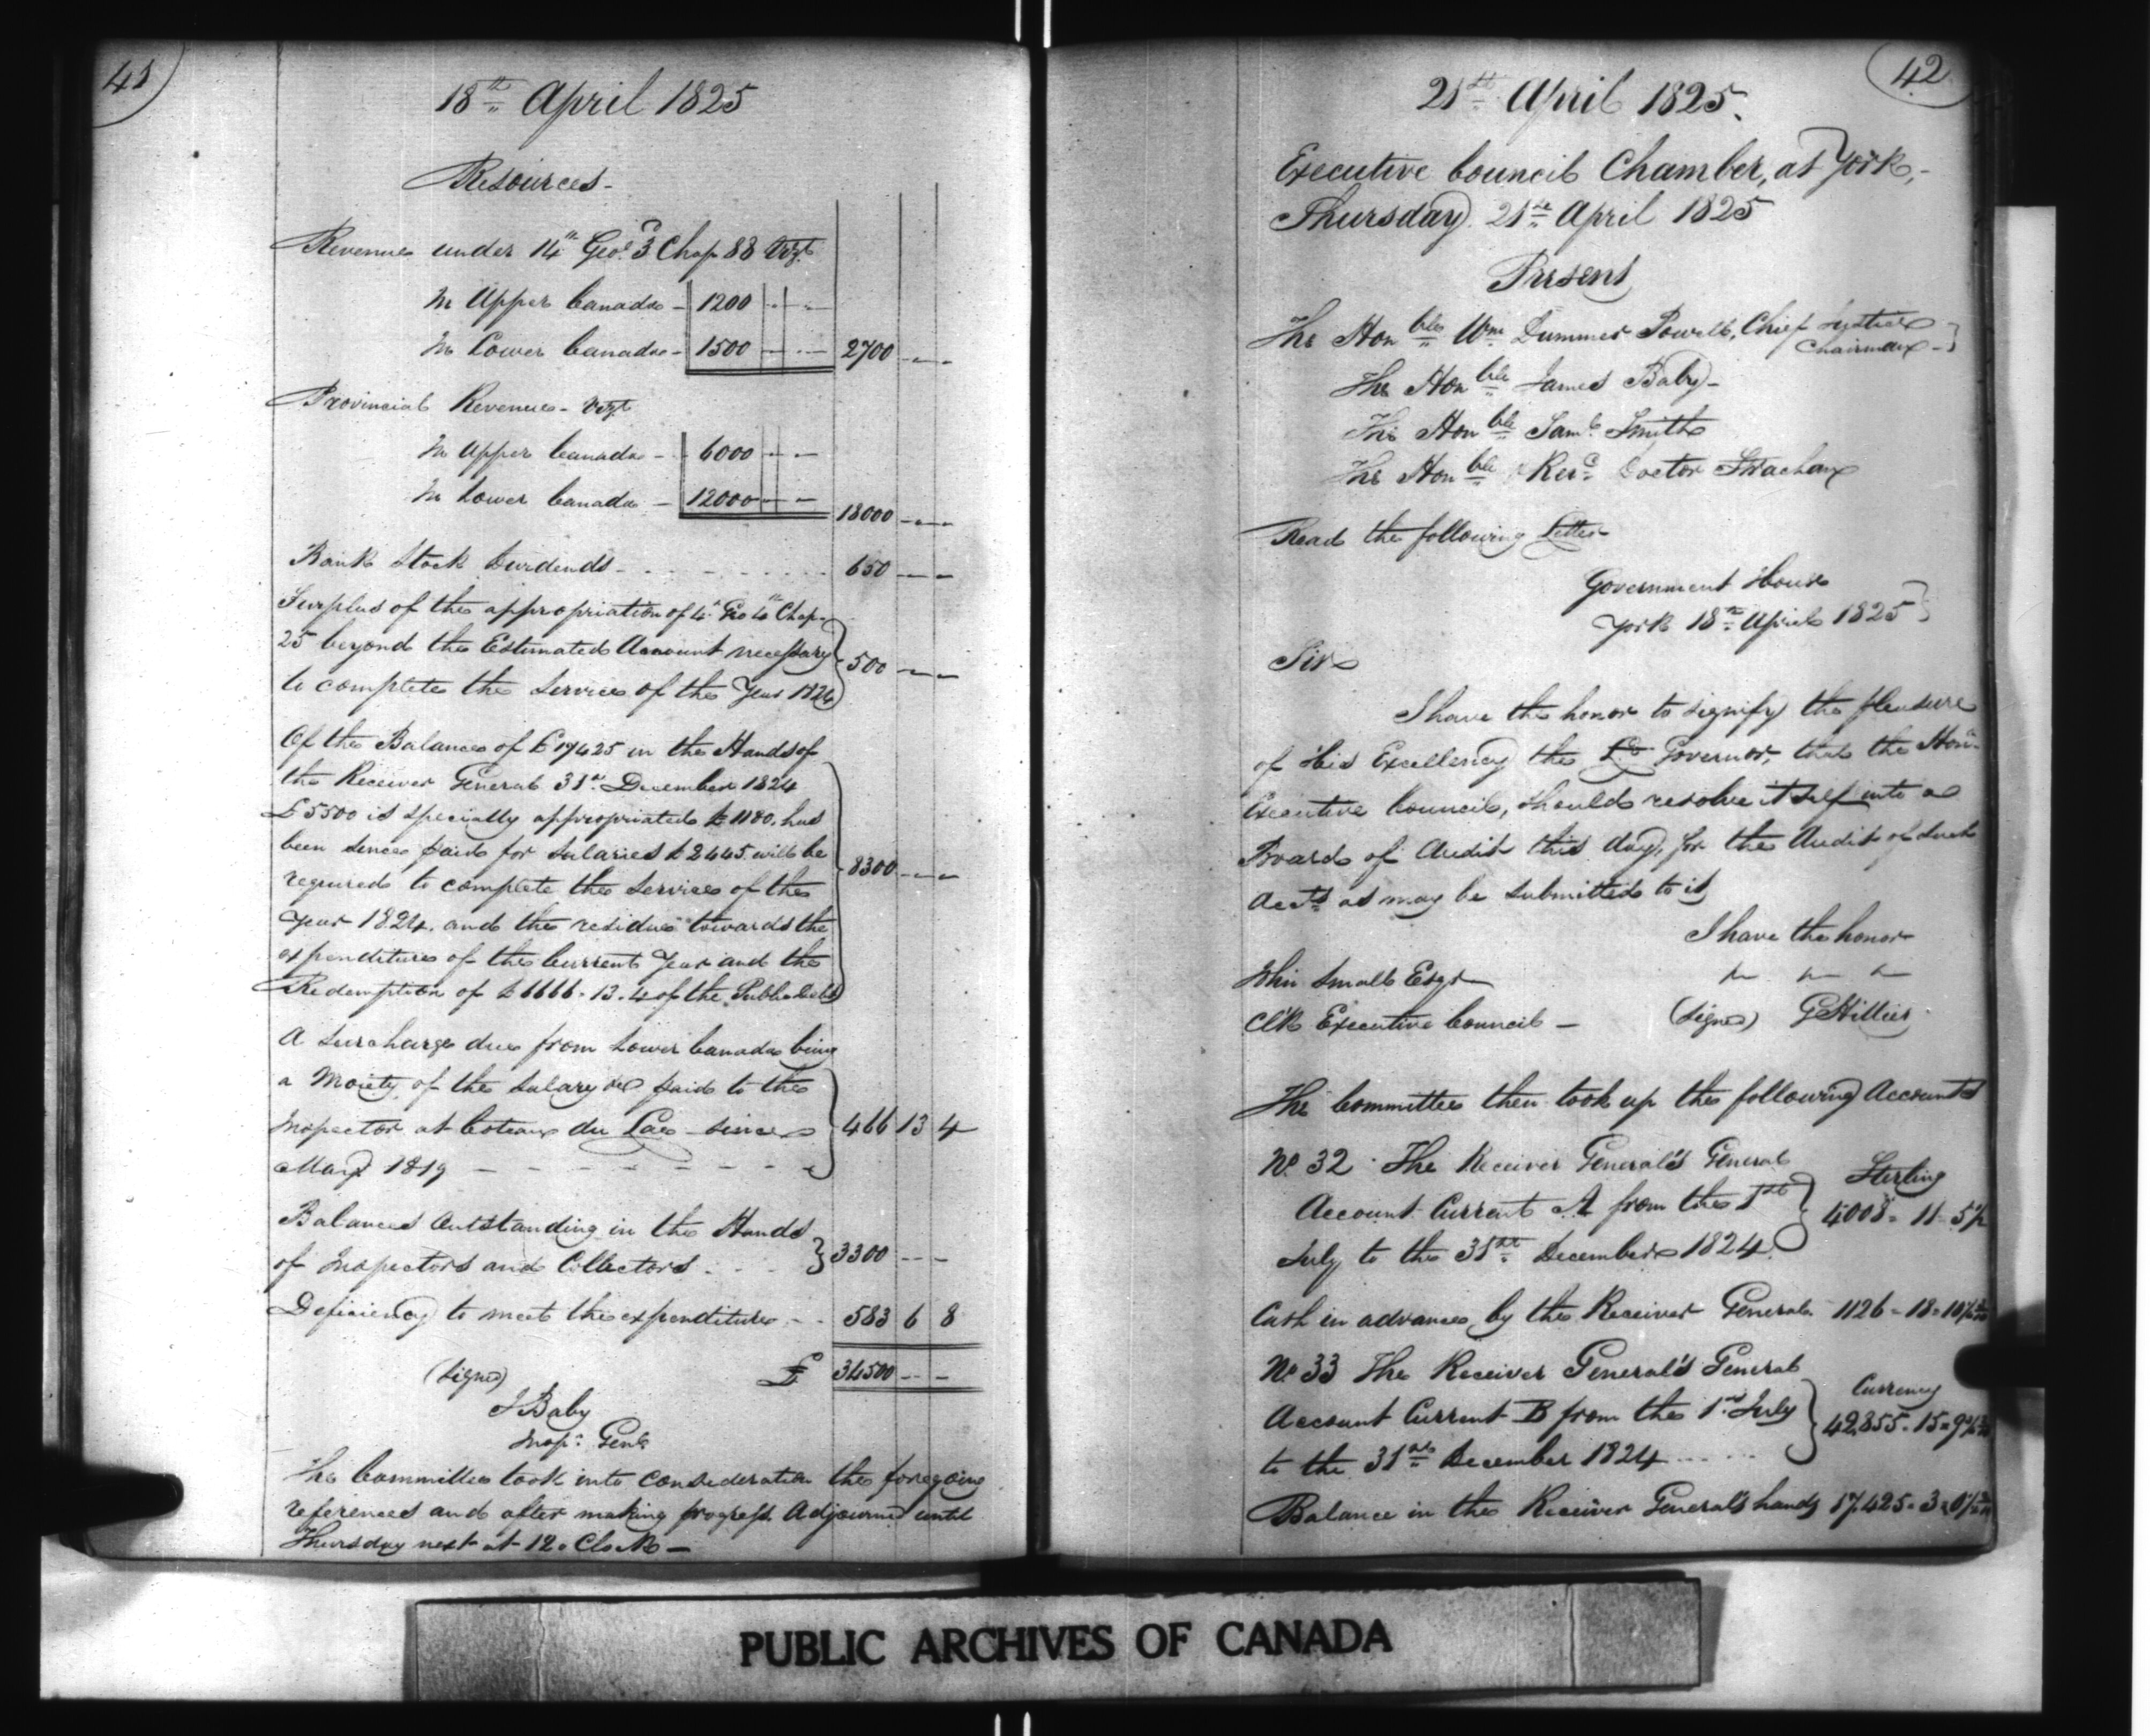 41
18th April 1825
Resources -
Revenue under 14th Geo. 3d Chap 88 Vizt
In Upper Canada - 1200 - -
In Lower Canada - 1500 - - 2700 - -
Provincial Revenue - Vizt
In Upper Canada - 6000 - -
In Lower Canada - 12000 - - 18000 - -
Bank Stock Dividends - 650 - -
Surplus of the appropriation of 4th Geo 4th Chap.
25 beyond the Estimated Amount necessary
to complete the Service of the Year 1824 500 - -
Of the Balance of £19425 in the Hands of
the Receiver General 31st December 1824
£5500 is specially appropriated £1180. has
been since paid for Salaries £2445. will be
required to complete the Service of the
Year 1824. and the residue towards the 8300 - -
expenditure of the Current Year and the
Redemption of £1666.13.4 of the Public Debt
A Surcharge due from Lower Canada being
a Moiety of the Salary &c paid to the
Inspector at Coteau du Lac since 466 13 4
May 1819 - - - - -
Balances Outstanding in the Hands
of Inspectors and Collectors . . . 3300 - -
Deficiency to meet the expenditure - - 583 6 8
(Signed) £ 34500 - -
J Baby
Insp. Genl.
The Committee took into consideration the foregoing
references and after making progress Adjourned until
Thursday next at 12 o Clock -
42
21st April 1825.
Executive Council Chamber, at York, -
Thursday 21st April 1825
Present
The Honble Wm Dummer Powell, Chief Justice
Chairman -
The Honble James Baby -
The Honble Saml Smith
The Honble & Revd Doctor Strachan
Read the following Letter
Government House
York 18th April 1825
Sir
I have the honor to signify the pleasure
of His Excellency the Lt Governor, that the Hon.
Executive Council, should resolve itself into a
Board of Audit this day, for the Audit of such
Accts as may be submitted to it
I have the honor
John Small Esqr
Clk Executive Council - (Signed) G Hillier
The Committee then took up the following Accounts
No 32 The Receiver General's General
Sterling
Account Current A from the 1st 4008 - 11 - 5½
July to the 31st December 1824
Cash in advance by the Receiver General 1126 - 18 - 10
No 33 The Receiver General's General
Currency
Account Current B from the 1st July 42,855 - 15 - 9
to the 31st December 1824 . . . .
Balance in the Receiver General's hands 17,425 - 3 - 0
PUBLIC ARCHIVES OF CANADA